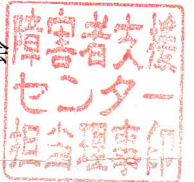 障害者支援
センター
担当理事印